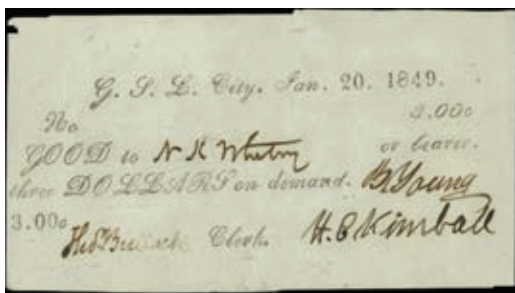 G. S. L. City, Jan. 20. 1849.
No 3.00c
GOOD to N K Whitney or bearer.
three DOLLARS on demand. B. Young
3.00c
Thos Bullock Clerk. H. C Kimball